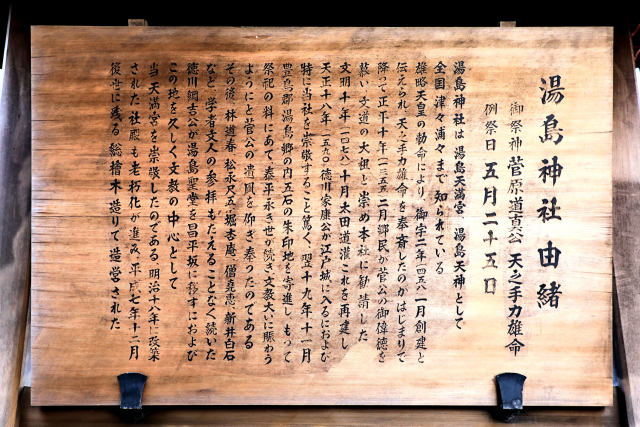 湯島神社由緒
御祭神 菅原道真公 天之手力雄命
例祭日 五月二十五日
湯島神社は 湯島天満宮 湯島天神として
全国津々浦々まで知られている
雄略天皇の勅命により 御宇二年(四五八)一月創建と
伝えられ 天之手力雄命を奉斎したのがはじまりで
降って正平十年(一三五五)二月郷民が菅公の御偉徳を
慕い 文道の大祖と崇め本社に勧請した
文明十年(一四七八)十月 太田道灌これを再建し
天正十八年(一五九〇)徳川家康公が江戸城に入るにおよび
特に当社を崇敬すること篤く 翌十九年十一月
豊島郡湯島郷の内五石の朱印地を寄進し もって
祭祀の料にあて 泰平永き世が続き 文教大いに賑わう
ようにと菅公の遺風を仰ぎ奉ったのである
その後 林道春 松永尺五 堀杏庵 僧堯恵 新井白石
など 学者文人の参拝もたえることなく続いた
徳川綱吉公が湯島聖堂を昌平坂に移すにおよび
この地を久しく文教の中心として
当天満宮を崇敬したのである 明治十八年に改築
された社殿も老朽化が進み 平成七年十二月
後世に残る総檜木造りで造営された